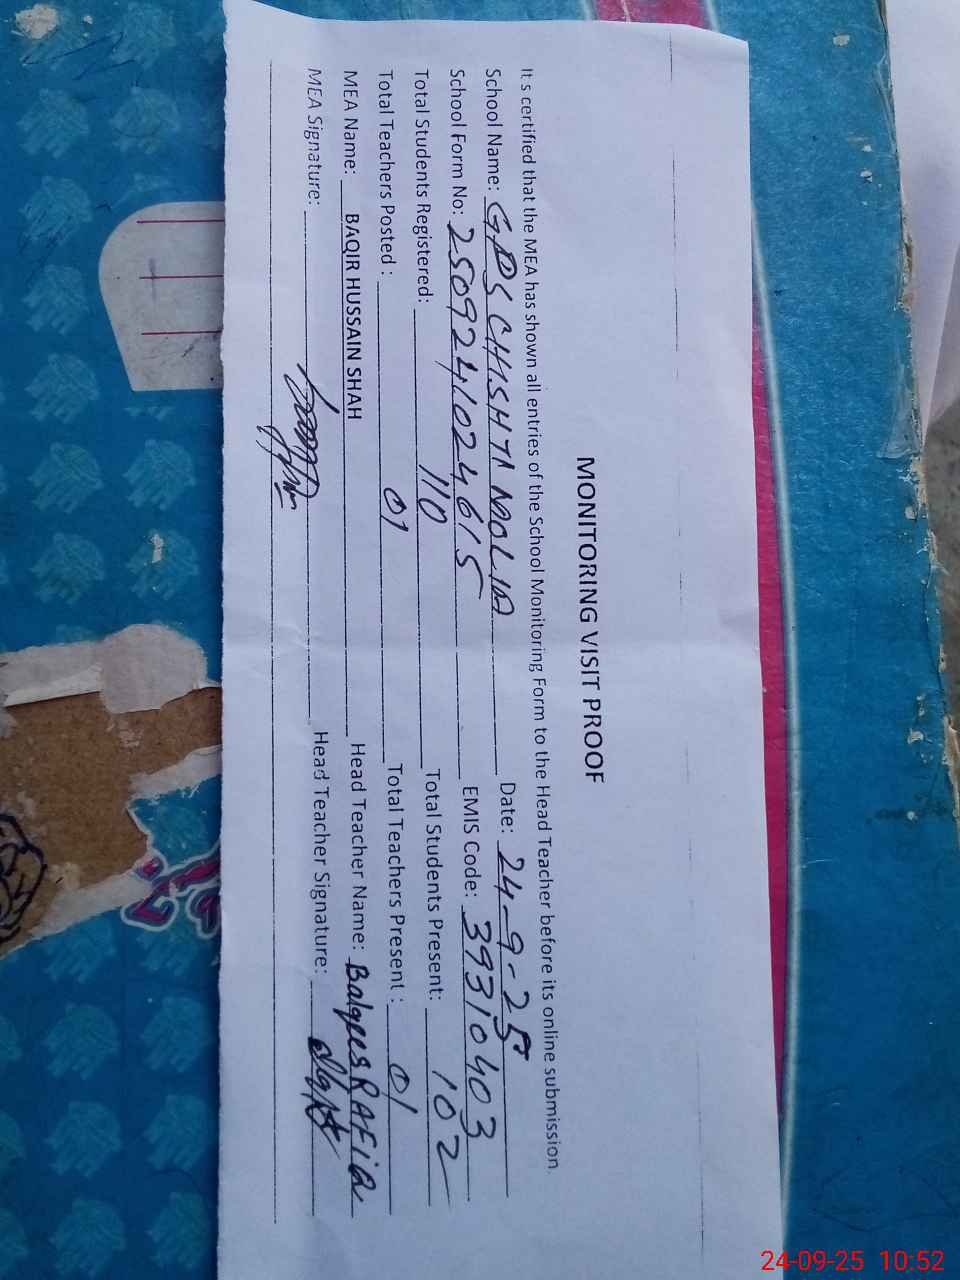 MONITORING VISIT PROOF
It s certified that the MEA has shown all entries of the School Monitoring Form to the Head Teacher before its online submission.
School Name: GPS CHISHTI NOOLIA Date: 24-9-25
School Form No: 2509241024615 EMIS Code: 39310403
Total Students Registered: 110 Total Students Present: 102
Total Teachers Posted : 01 Total Teachers Present : 01
MEA Name: BAQIR HUSSAIN SHAH Head Teacher Name: Balqees RAFIQ
MEA Signature: Head Teacher Signature:
24-09-25 10:52